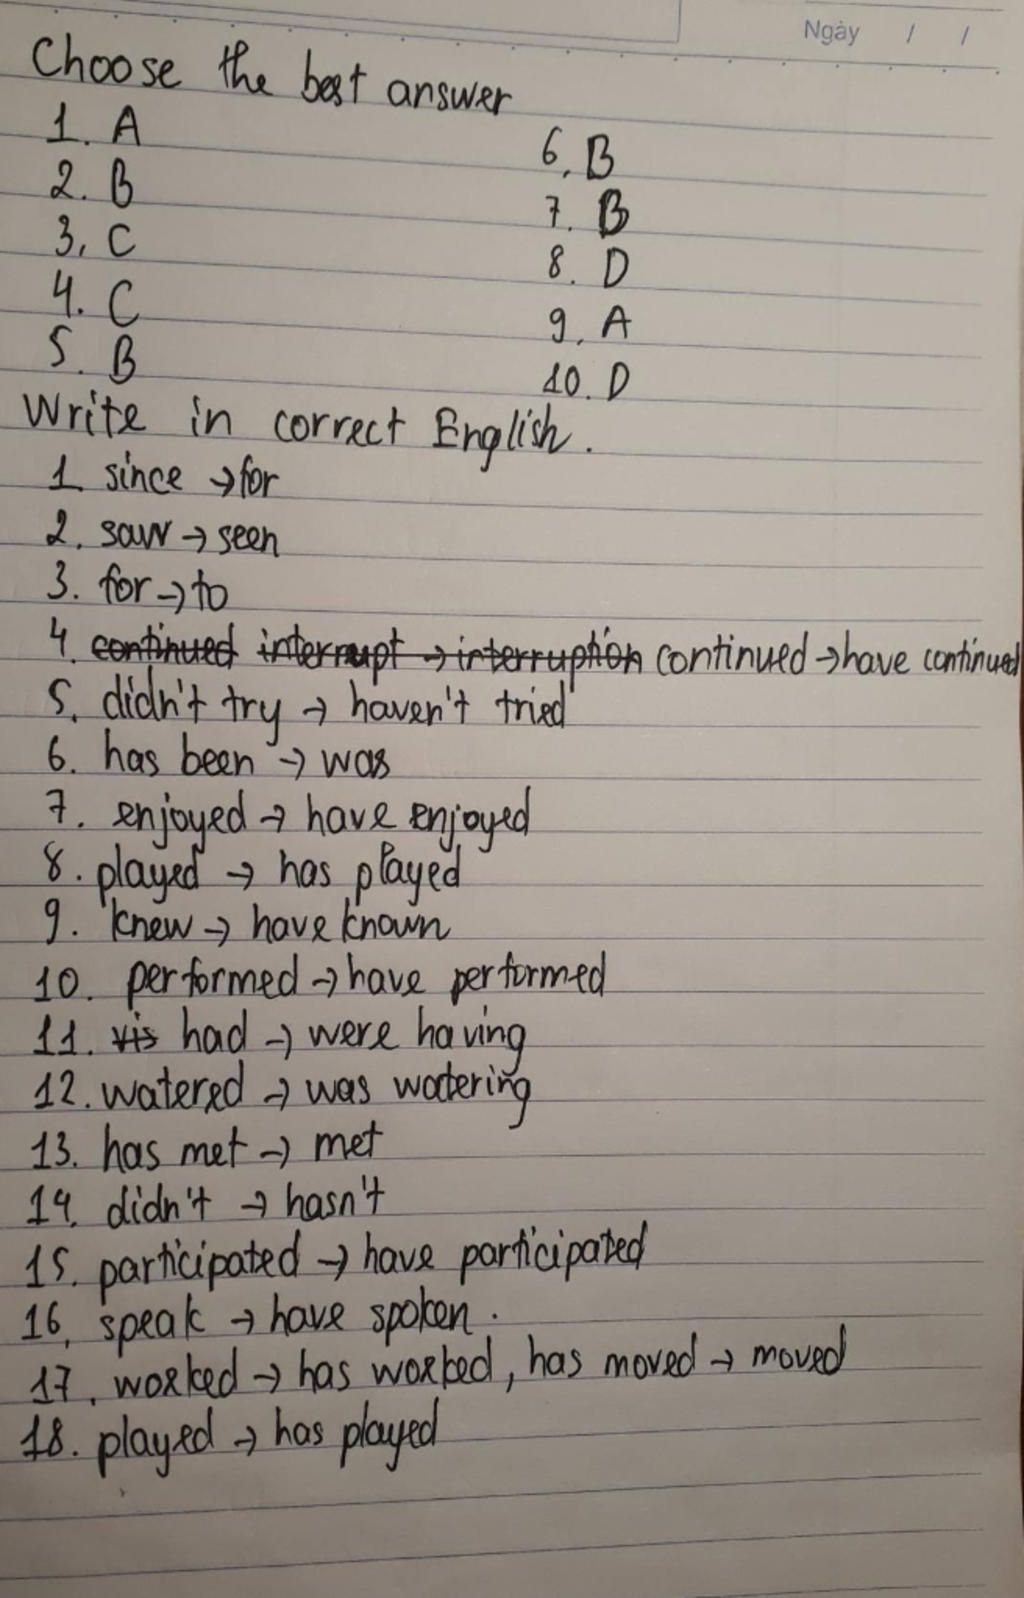 Ngày / /
Choose the best answer
1. A
2. B
3, C
4. C
5. B
6, B
7. B
8. D
9, A
10. D
Write in correct English.
1 since → for
2. saw → seen
3. for → to
4. continued interrupt → interruption continued → have continued
5. didn't try → haven't tried
6. has been → was
7. enjoyed → have enjoyed
8. played → has played
9. knew → have known
10. performed → have performed
11. vis had → were having
12. watered → was watering
13. has met → met
14. didn't → hasn't
15. participated → have participated
16, speak → have spoken.
17. worked → has worked, has moved → moved
18. played → has played